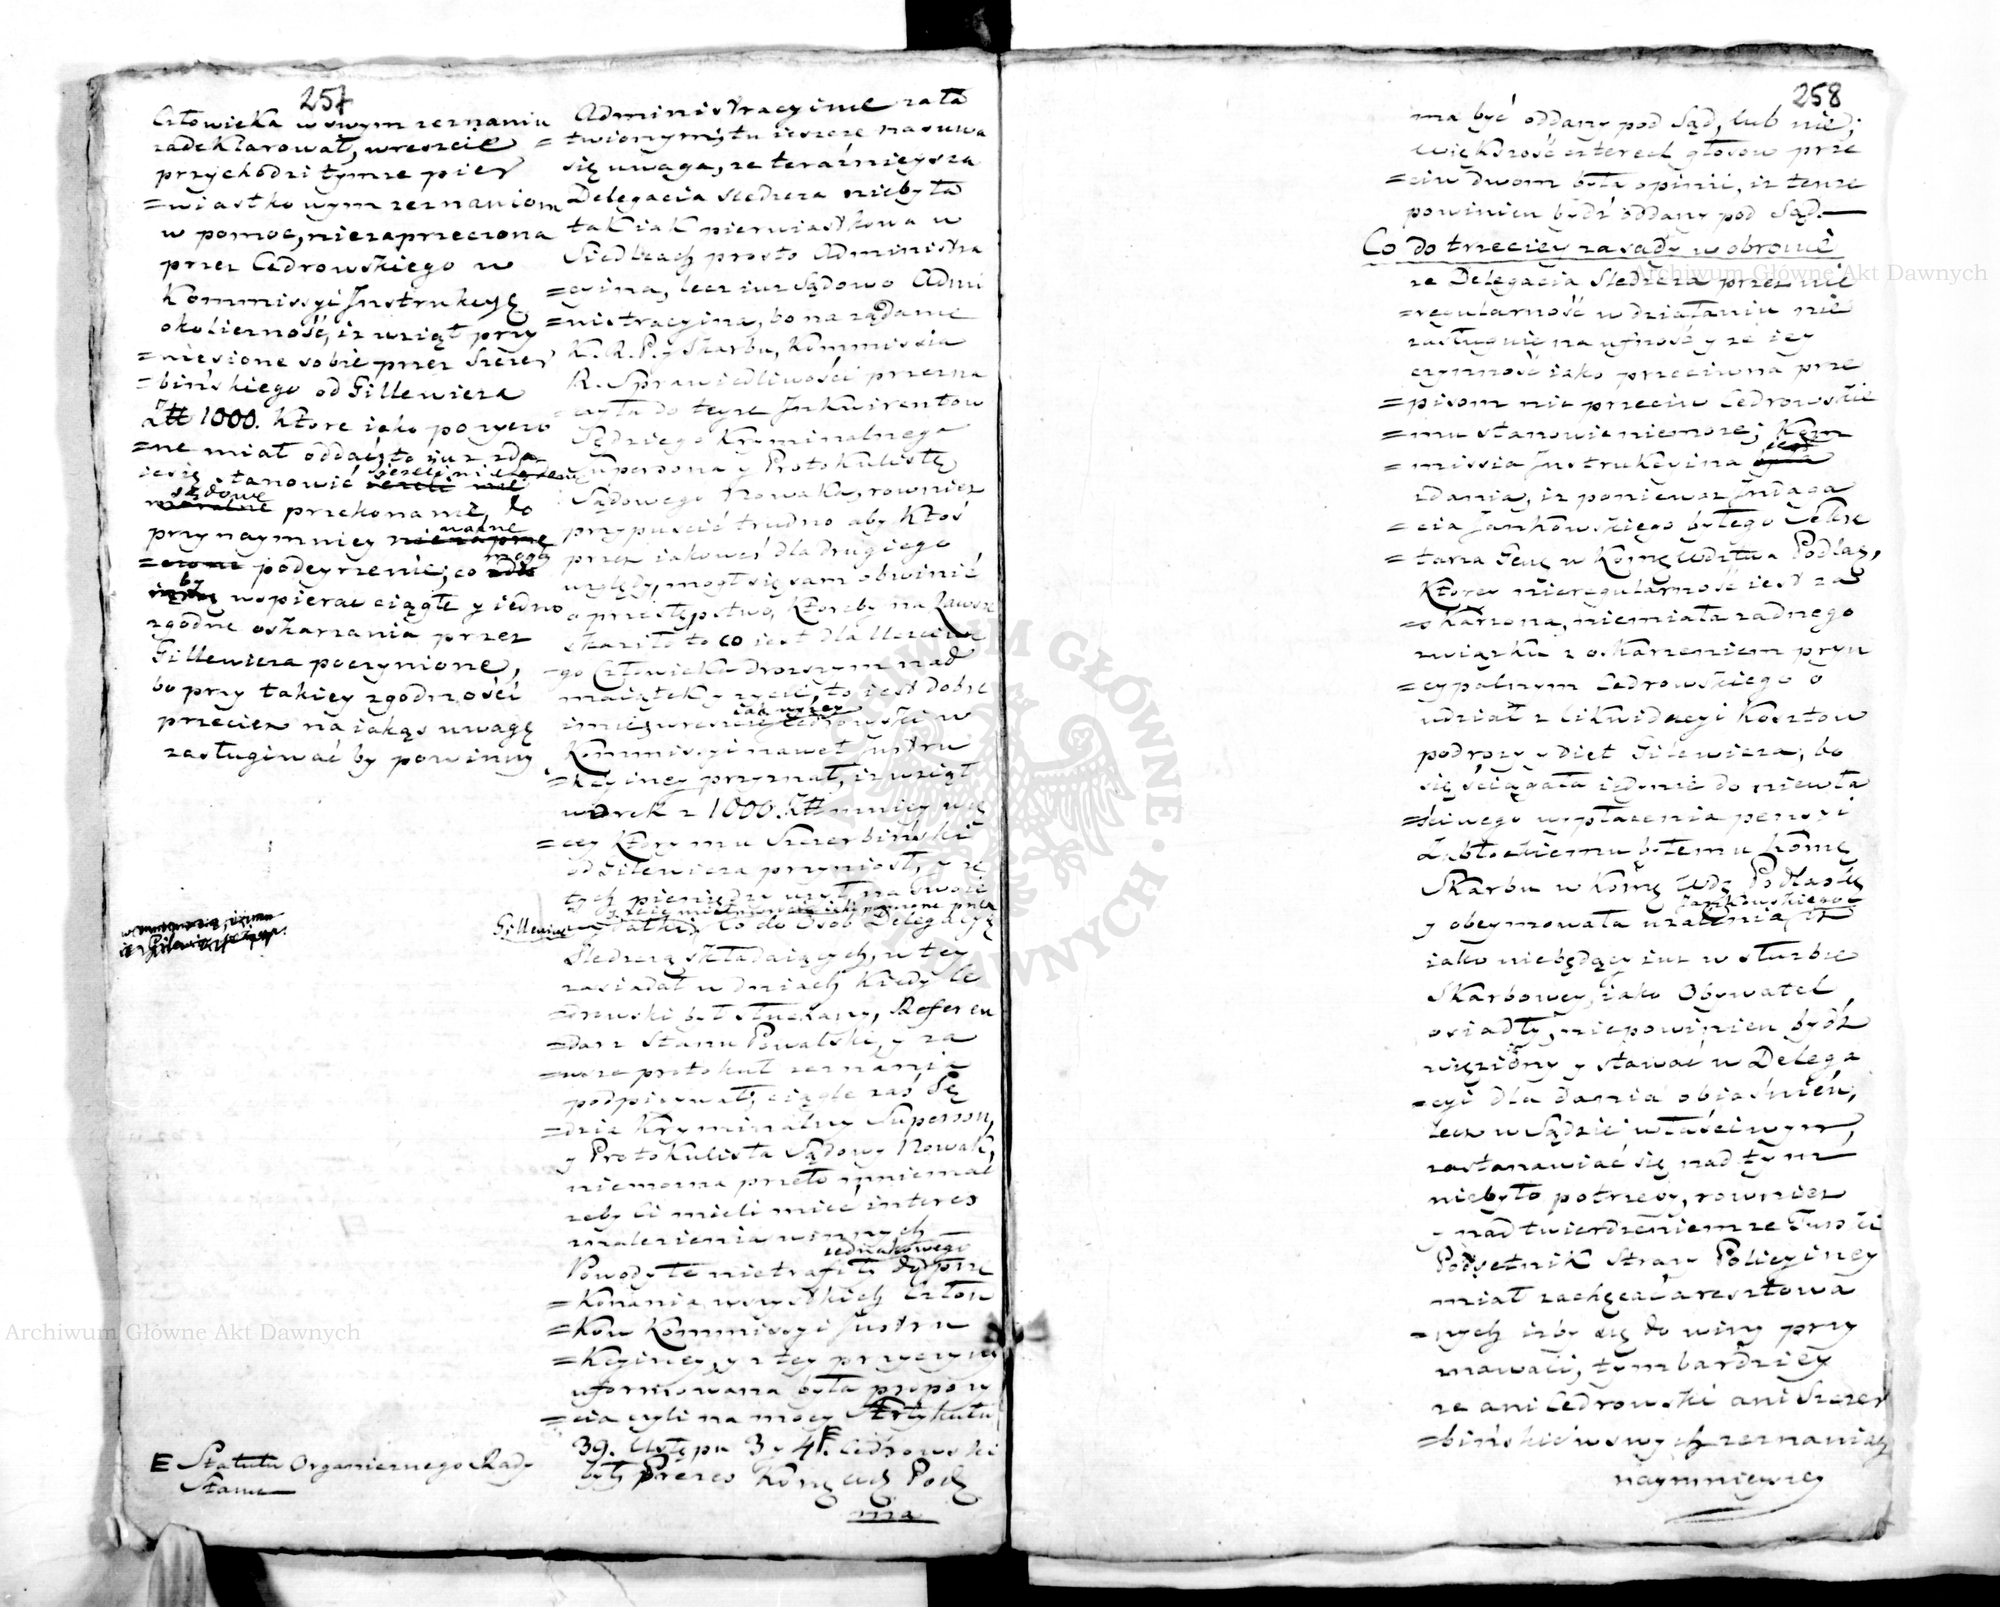 257
Człowieka w swym zeznaniu
zadeklarował, wreszcie
przychodzi tymże pier
=wiastkowym zeznaniom
w pomoc, niezaprzeczona
przez Cedrowskiego w
Kommissyi Instrukcyę
okoliczność, iż wziął przy
=niesione sobie przez Szczer
=bińskiego od Gillewicza
Zł 1000. które iako pozyczo
=ne miał oddać, to iuż zda
ie się stanowić ieżeli nie
sądowe
moralne przekonanie, to
przynaymniey ważne
podeyrzenie, co mogą
by wspierac ciągłe y iedno
zgodne oskarzania przez
Gillewicza poczynione,
bo przy takiey zgodności
przeciez na iakąś uwagę
zasługiwać by powinny.
E Statutu Organicznego Rady
Stanu
Administracyine zała
=twionym; tu ieszcze nasuwa
się uwaga, ze teraźnieysza
Delegacia śledcza niebyła
tak iak pierwiastkowa w
Siedlcach prosto Administra
=cyina, lecz iuz Sądowo Admi
=nistracyina, bo na ządanie
K. R. P. y Skarbu, Kommissia
R. Sprawiedliwości przezna
=czyła do teyze Inkwirentow
Sędziego Kryminalnego
Supersona y Protokulistę
Sądowego Nowaka, rowniez
przypuscić trudno aby ktoś
przez iakoweś dla drugiego
względy, mogł się sam obwinić
o przestępstwo, ktoreby na zawsze
skaziło to co iest dla Uczciwe
=go Człowieka droższym nad
maiątek y zycie, to iest dobre
imie; wreszcie iak wyzey Cedrowski w
Kommissyi nawet Instru
=kcyiney przyznał, iz wziął
worek z 1000. Zł mniey wię
=cey ktory mu Szczerbiński
od Gilewicza przyniosł, y ze
tych pieniędzy uzył na swoie
Gillewicza
wydatki, Co do Osob Delegacyę
Śledczą składaiących, w tey
zasiadał w dniach kiedy Ce
=drowski był słuchany, Referen
=darz Stanu Powalski, y za
=wsze protokuł zeznania
podpisywał, ciągle zaś Sę
=dzia Kryminalny Superson,
y Protokulista Sądowy Nowak,
niemozna przeto mniemać
zeby Ci mieli mieć interes
znalezienia winnych
iednakowego
Powody te nietrafiły do prze
=konania wszystkich Człon
=kow Kommissyi Instru
=kcyiney, y z tey przyczyny
uformowana była propozy
=cia czyli na mocy Artykułu
39. Ustępu 3 y 4 E. Cedrowski
były Prezes Kom: Wdz Podl
ma
258
ma być oddany pod Sąd, lub nie;
większość czterech głosow prze
=ciw dwom była opinii, iz tenze
powinien bydź oddany pod Sąd.
Co do trzeciey zasady w obronie
ze Delegacia Śledcza przez nie
=regularność w działaniu nie
zasługuie na ufność y ze iey
czynność iako przeciwna prze
=pisom nic przeciw Cedrowskie
=mu stanowić niemoze; Kom
=missia Instrukcyina iest
zdania, iz poniewaz Indaga
=cia Jankowskiego byłego Sekre
=tarza Gen: w Kom: Wdztwa Podlas,
Ktorey nieregularność iest za
=skarzona, niemiała zadnego
związku z oskarzeniem pryn
=cypalnym Cedrowskiego o
udział z likwidacyi kosztow
podrozy y diet Gilewicza, bo
się ściągała iedynie do niewła
=ściwego wypłacenia pensyi
Zabłockiemu byłemu Kom:
Skarbu w Kom: Wdz Podlas:
y obeymowała uzalenia Jankowskiego iz
iako niebędący iuz w służbie
Skarbowey, iako Obywatel
osiadły, niepowinien bydź
więziony y stawać w Delega
=cyi dla dania obiaśnień,
lecz w Sądzie właściwym,
zastanawiać się nad tym
niebyło potrzeby, rowniez
y nad twierdzeniem ze Turski
Podsętnik Strazy Policyiney
miał zachęcać aresztowa
=nych izby się do winy przy
znawali, tym bardziey
ze ani Cedrowski ani Szczer
=biński w swych zeznaniach
naymnieyszey
Archiwum Główne Akt Dawnych
Archiwum Główne Akt Dawnych
ARCHIWUM GŁÓWNE AKT DAWNYCH